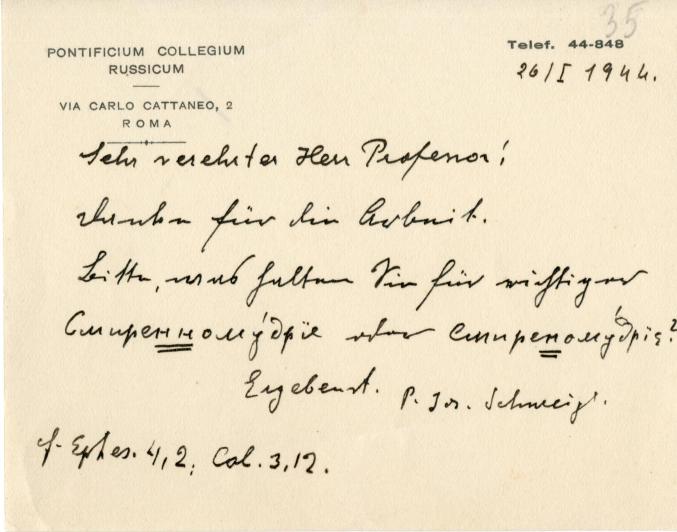 35
PONTIFICIUM COLLEGIUM
RUSSICUM
Telef. 44-848
26/I 1944.
VIA CARLO CATTANEO, 2
ROMA
Sehr verehrter Herr Professor!
Danke für die Arbeit.
Bitte, was halten Sie für wichtiger
Смиренномýдрїе oder смиреномýдрїе?
Ergebenst. P. Jos. Schweigl.
cf. Ephes. 4,2; Col. 3,12.